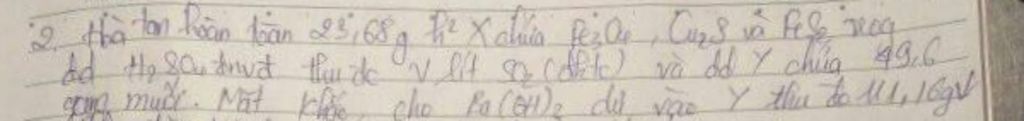 2. Hòa tan hoàn toàn 23,68 g h² X chứa Fe3O4, Cu2S và FeS2 
dd H2SO4 thu đc V lít SO2 (đktc) và dd Y chứa 49,6
gam muối. Mặt khác, cho Ba(OH)2 dư vào Y thu đc 111,16g ↓